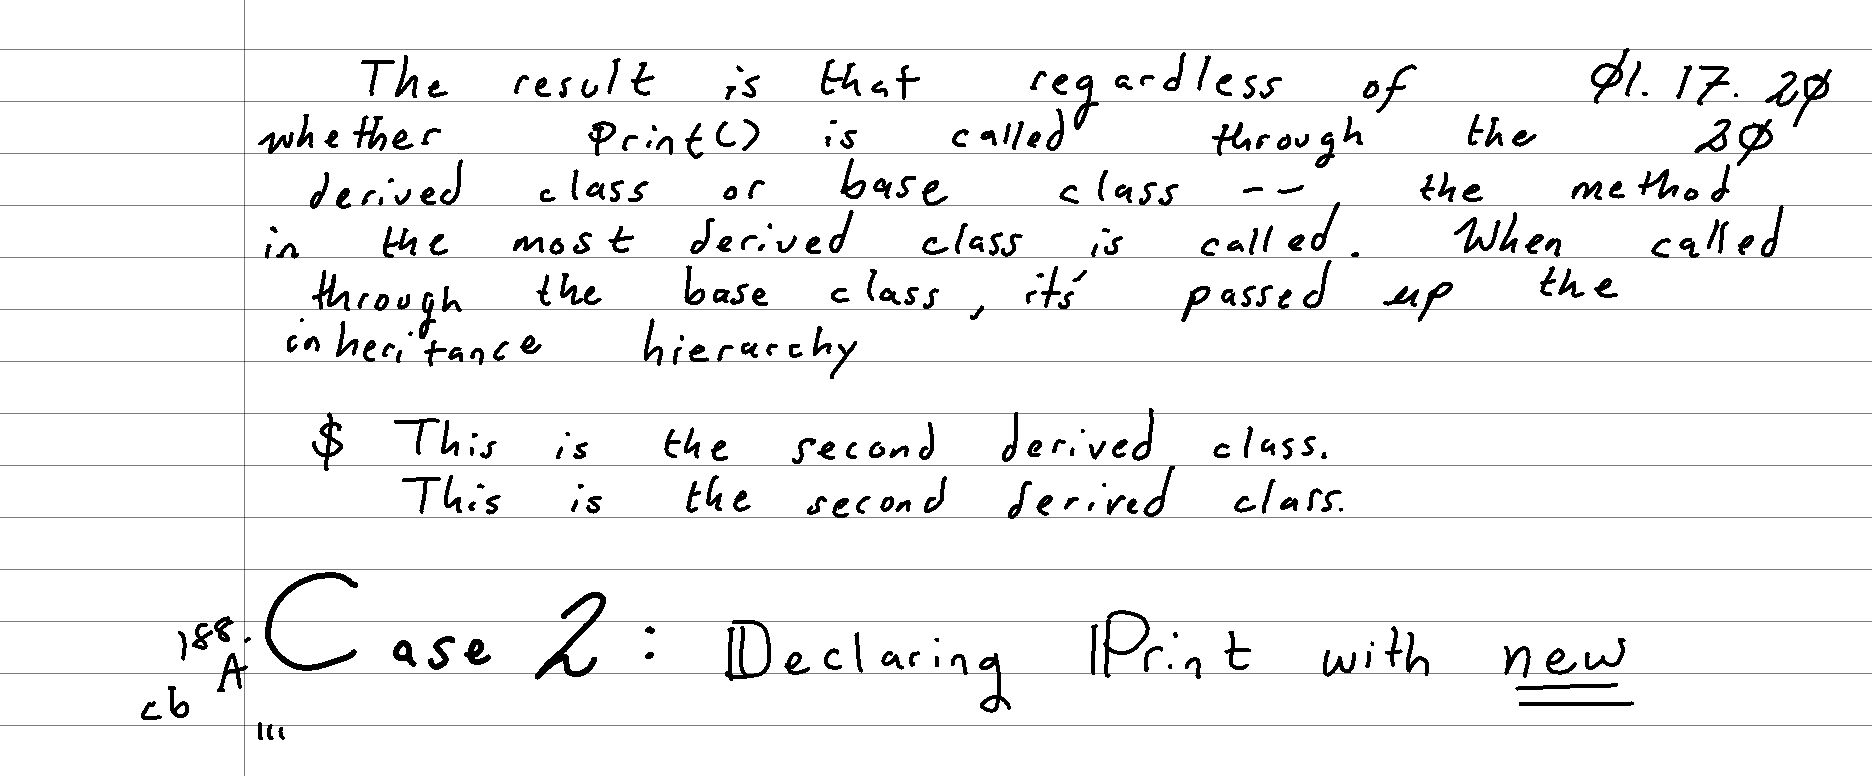 The result is that regardless of Ø1. 17. 2Ø
whether Print() is called through the 2Ø
derived class or base class -- the method
in the most derived class is called. When called
through the base class, it's passed up the
inheritance hierarchy
$ This is the second derived class.
This is the second derived class.
188. Case 2: Declaring Print with new
A
cb
...